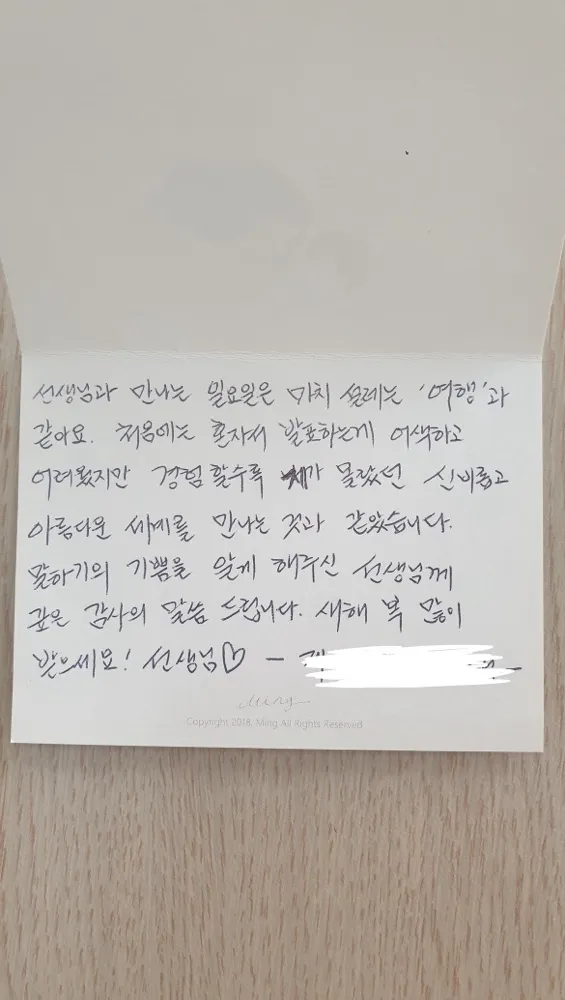 선생님과 만나는 일요일은 마치 설레는 '여행'과
같아요. 처음에는 혼자서 발표하는게 어색하고
어려웠지만 경험할수록 가 몰랐던 신비롭고
아름다운 세계를 만나는 것과 같았습니다.
말하기의 기쁨을 알게 해주신 선생님께
깊은 감사의 말씀 드립니다. 새해 복 많이
받으세요! 선생님♡ -
Ming
Copyright 2018. Ming All Rights Reserved